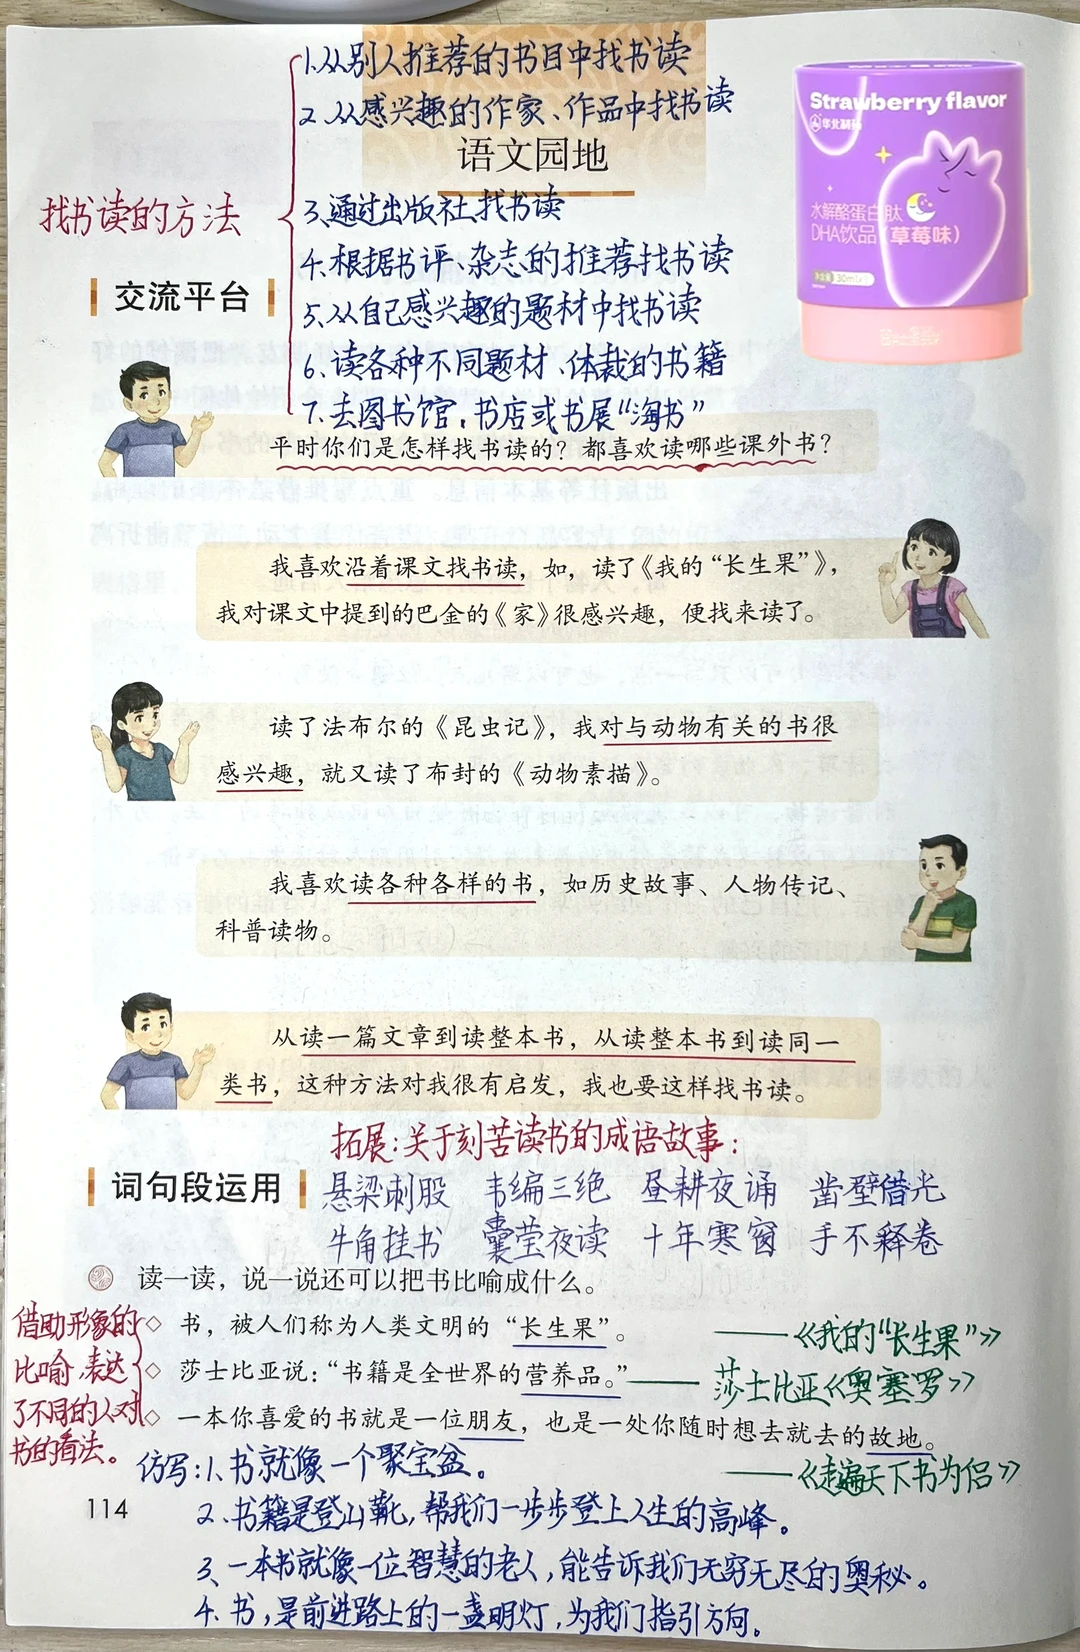 1.从别人推荐的书目中找书读
2.从感兴趣的作家、作品中找书读
语文园地
找书读的方法
3、通过出版社找书读
4.根据书评、杂志的推荐找书读
5、从自己感兴趣的题材中找书读
6、读各种不同题材、体裁的书籍
7.去图书馆,书店或书展“淘书”
Strawberry flavor
水解酪蛋白肽
DHA饮品(草莓味)
30ml
交流平台
平时你们是怎样找书读的?都喜欢读哪些课外书?
我喜欢沿着课文找书读,如,读了《我的“长生果”》,
我对课文中提到的巴金的《家》很感兴趣,便找来读了。
读了法布尔的《昆虫记》,我对与动物有关的书很
感兴趣,就又读了布封的《动物素描》。
我喜欢读各种各样的书,如历史故事、人物传记、
科普读物。
从读一篇文章到读整本书,从读整本书到读同一
类书,这种方法对我很有启发,我也要这样找书读。
拓展:关于刻苦读书的成语故事:
词句段运用
悬梁刺股 韦编三绝 昼耕夜诵 凿壁借光
牛角挂书 囊萤夜读 十年寒窗 手不释卷
读一读,说一说还可以把书比喻成什么。
借助形象的
比喻,表达
了不同的人对
书的看法。
◇ 书,被人们称为人类文明的“长生果”。 ——《我的“长生果”》
◇ 莎士比亚说:“书籍是全世界的营养品。” —— 莎士比亚《奥塞罗》
◇ 一本你喜爱的书就是一位朋友,也是一处你随时想去就去的故地。
——《走遍天下书为侣》
仿写:1、书就像一个聚宝盆。
2、书籍是登山靴,帮我们一步步登上人生的高峰。
3、一本书就像一位智慧的老人,能告诉我们无穷无尽的奥秘。
4.书,是前进路上的一盏明灯,为我们指引方向。
114